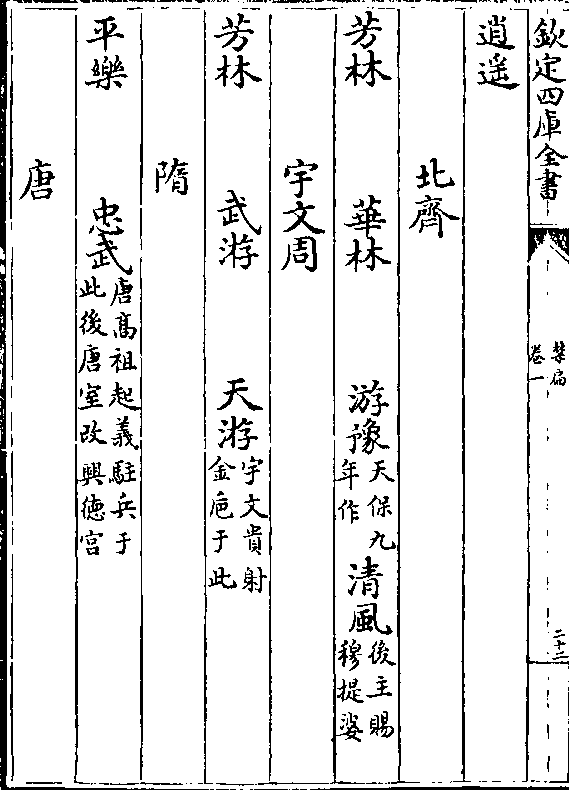 欽定四庫全書
禁扁
卷一
二十二
逍遥
北齊
芳林 華林 游豫天保九年作 清風後主賜穆提婆
宇文周
芳林 武游 天游宇文貴射金巵于此
隋
平樂 忠武唐髙祖起義駐兵于此後唐室改興徳宫
唐